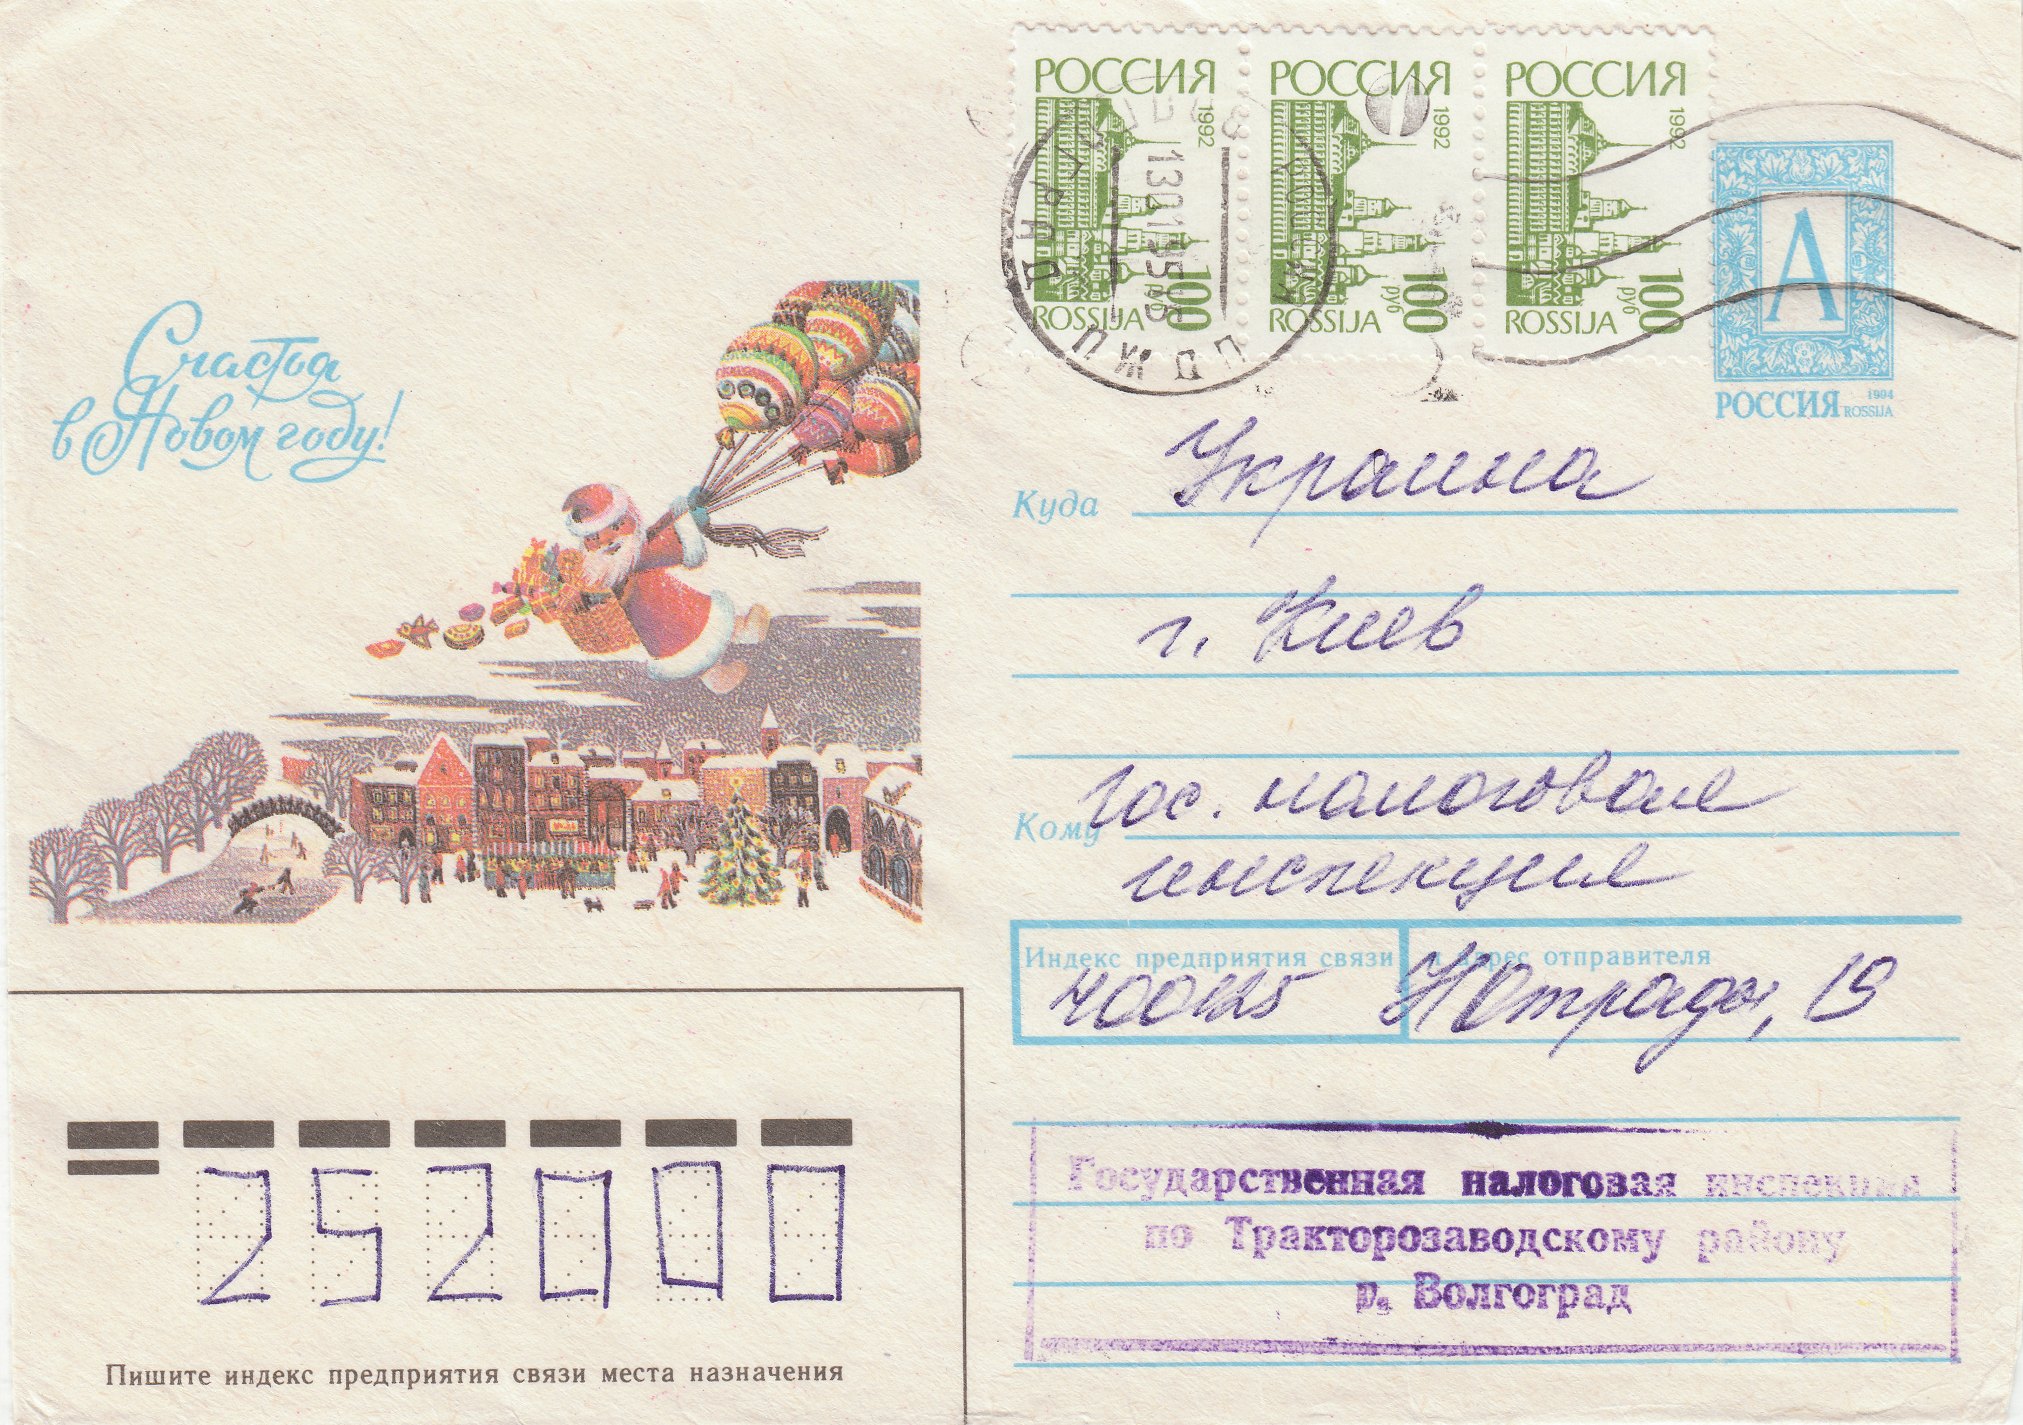 Счастья
в Новом году!
РОССИЯ 1992
100 руб
ROSSIJA
РОССИЯ 1992
100 руб
ROSSIJA
РОССИЯ 1992
100 руб
ROSSIJA
ВОЛГОГРАД
130195
ПЖДП
А
РОССИЯ 1994 ROSSIJA
Куда Украина
г. Киев
Кому Гос. налоговая
инспекция
Индекс предприятия связи и адрес отправителя
400125 Н Отрады, 19
Государственная налоговая инспекция
по Тракторозаводскому району
г. Волгоград
252000
Пишите индекс предприятия связи места назначения